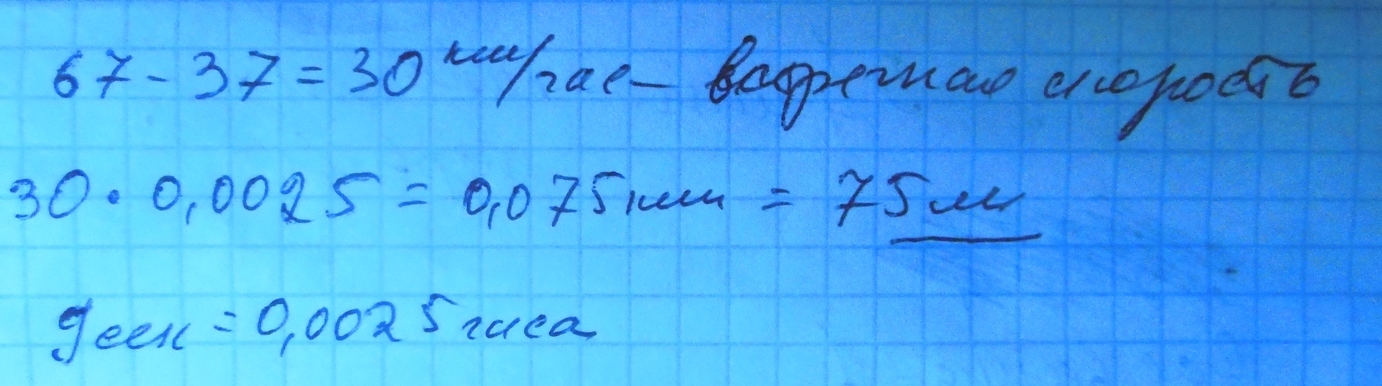 67 - 37 = 30 км/час - встречная скорость
30 · 0,0025 = 0,075 км = 75 м
9 сек = 0,0025 часа